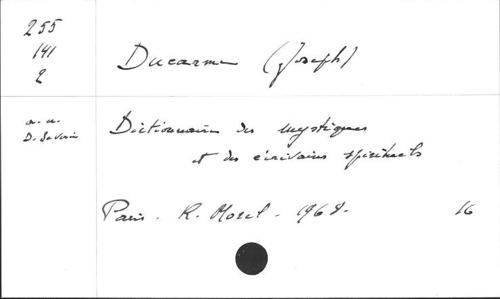 255
141
2
Ducarme (Joseph)
a. u.
D. Saverin
Dictionnaire des mystiques
et des écrivains spirituels
Paris. R. Morel. 1968. 16